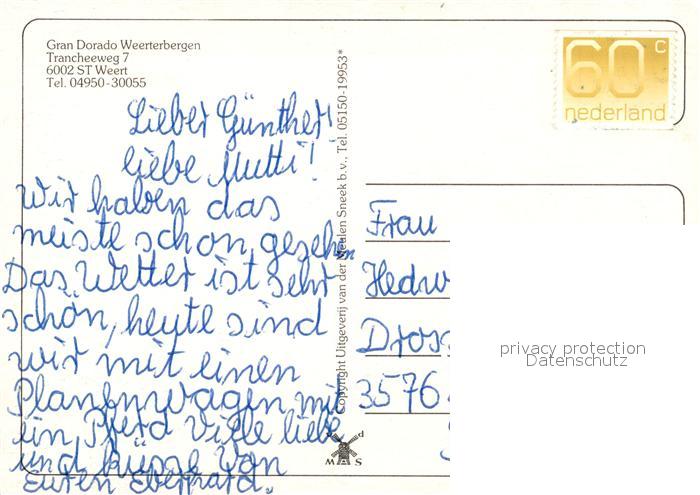 Gran Dorado Weerterbergen
Trancheeweg 7
6002 ST Weert
Tel. 04950-30055
60 c
nederland
Copyright Uitgeverij van der Meulen Sneek b.v., Tel. 05150-19953*
Lieber Günther!
liebe Mutti!
Wir haben das
meiste schon gesehen
Das Wetter ist sehr
schön, heute sind
wir mit einen
Planenwagen mit
ein Pferd Viele liebe
und küsse Von
Euren Eberhard.
Frau
Hedw
Dros
3576
privacy protection
Datenschutz
v d
M S